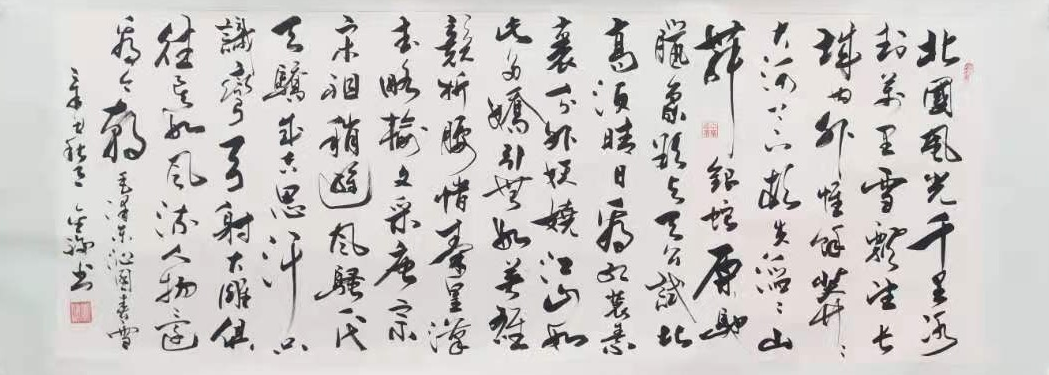 北國風光千里冰
封萬里雪飄望長
城內外惟餘莽々
大河上下頓失滔々山
舞銀蛇原馳
臘象欲與天公試比
高須晴日看紅裝素
裹分外妖嬈江山如
此多嬌引無數英雄
競折腰惜秦皇漢
武略輸文采唐宗
宋祖稍遜風騷一代
天驕成吉思汗只
識彎弓射大雕俱
往矣數風流人物還
看今朝毛澤東沁園春雪
辛丑秋月書